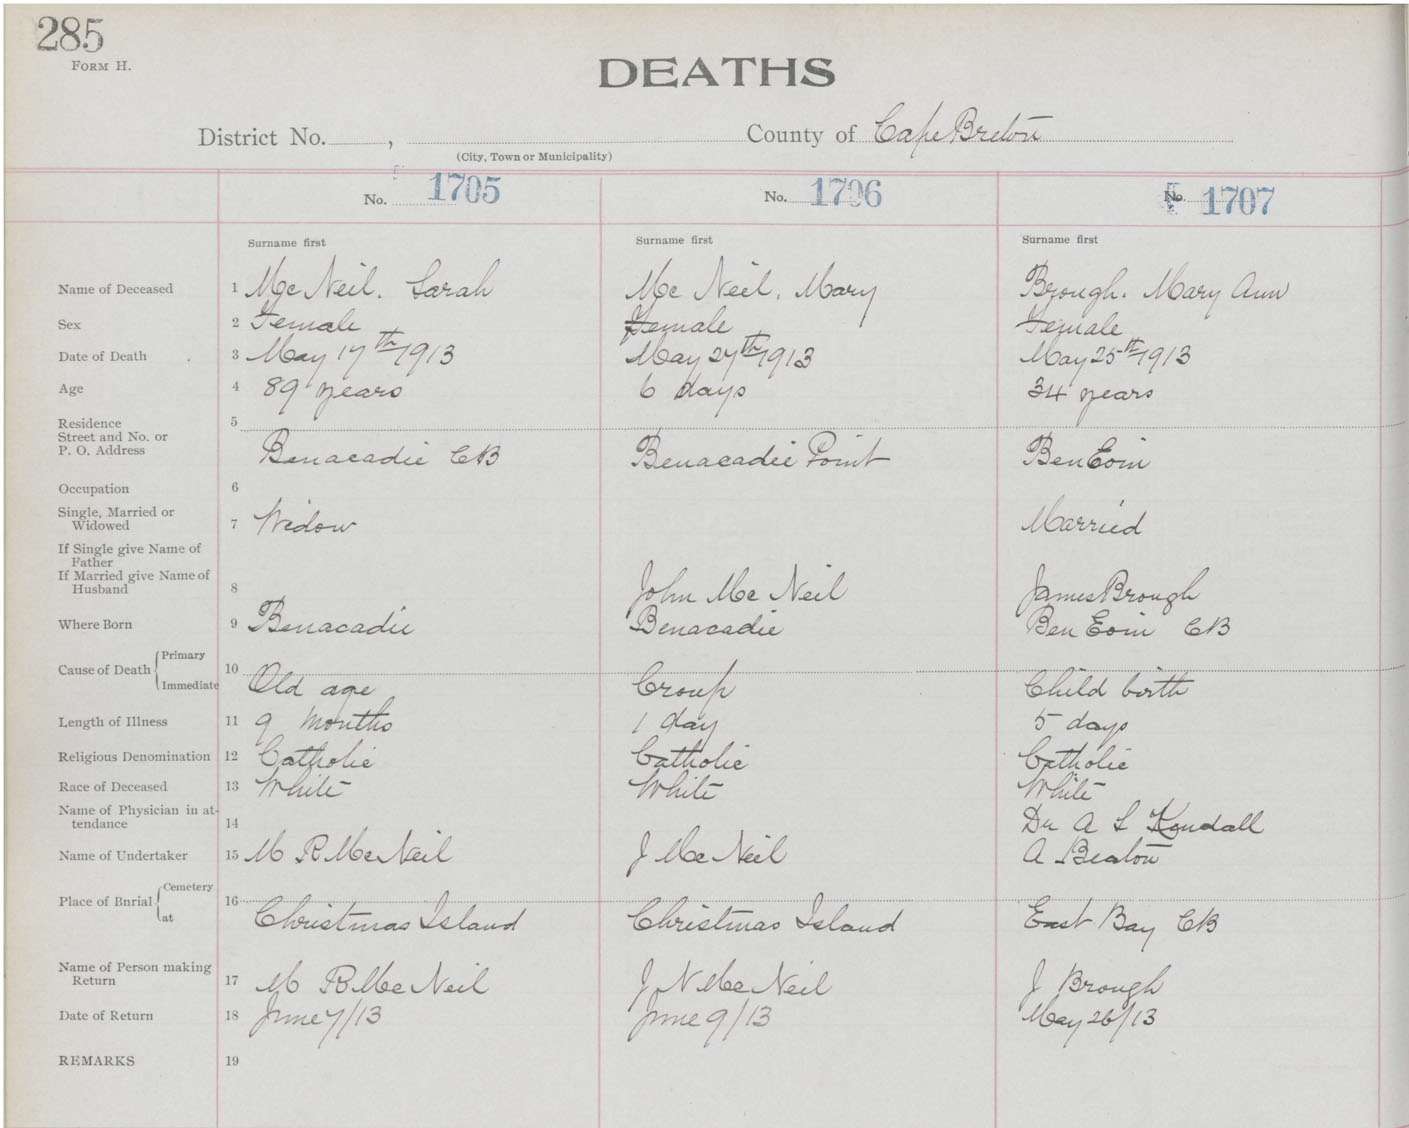 285
FORM H.
DEATHS
District No. , County of Cape Breton
(City, Town or Municipality)
No. 1705 No. 1706 No. 1707
Surname first Surname first Surname first
Name of Deceased 1 Mc Neil. Sarah Mc Neil. Mary Brough. Mary Ann
Sex 2 Female Female Female
Date of Death 3 May 17th 1913 May 27th 1913 May 25th 1913
Age 4 89 years 6 days 34 years
Residence
Street and No. or
P. O. Address 5 Benacadie CB Benacadie Point Ben Eoin
Occupation 6
Single, Married or
Widowed 7 Widow Married
If Single give Name of
Father
If Married give Name of
Husband 8 John Mc Neil James Brough
Where Born 9 Benacadie Benacadie Ben Eoin CB
Cause of Death Primary 10
Immediate Old age Croup Child birth
Length of Illness 11 9 months 1 day 5 days
Religious Denomination 12 Catholic Catholic Catholic
Race of Deceased 13 White White White
Name of Physician in at-
tendance 14 Dr A S Kendall
Name of Undertaker 15 M R McNeil J McNeil A Beaton
Place of Bnrial Cemetery 16
at Christmas Island Christmas Island East Bay CB
Name of Person making
Return 17 M R McNeil J N McNeil J Brough
Date of Return 18 June 7/13 June 9/13 May 26/13
REMARKS 19